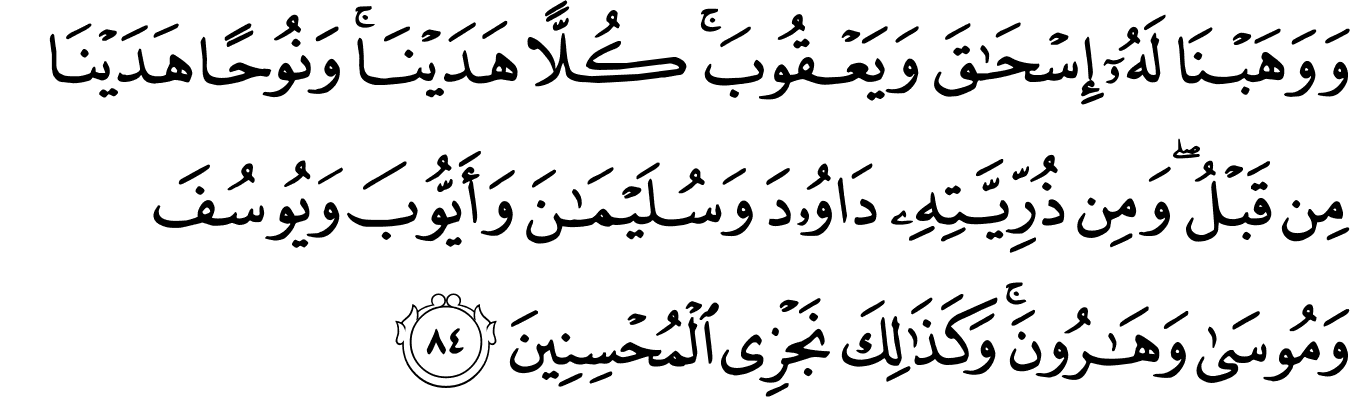 وَوَهَبْنَا لَهُۥٓ إِسْحَـٰقَ وَيَعْقُوبَ ۚ كُلًّا هَدَيْنَا ۚ وَنُوحًا هَدَيْنَا
مِن قَبْلُ ۖ وَمِن ذُرِّيَّتِهِۦ دَاوُۥدَ وَسُلَيْمَـٰنَ وَأَيُّوبَ وَيُوسُفَ
وَمُوسَىٰ وَهَـٰرُونَ ۚ وَكَذَٰلِكَ نَجْزِى ٱلْمُحْسِنِينَ ٨٤